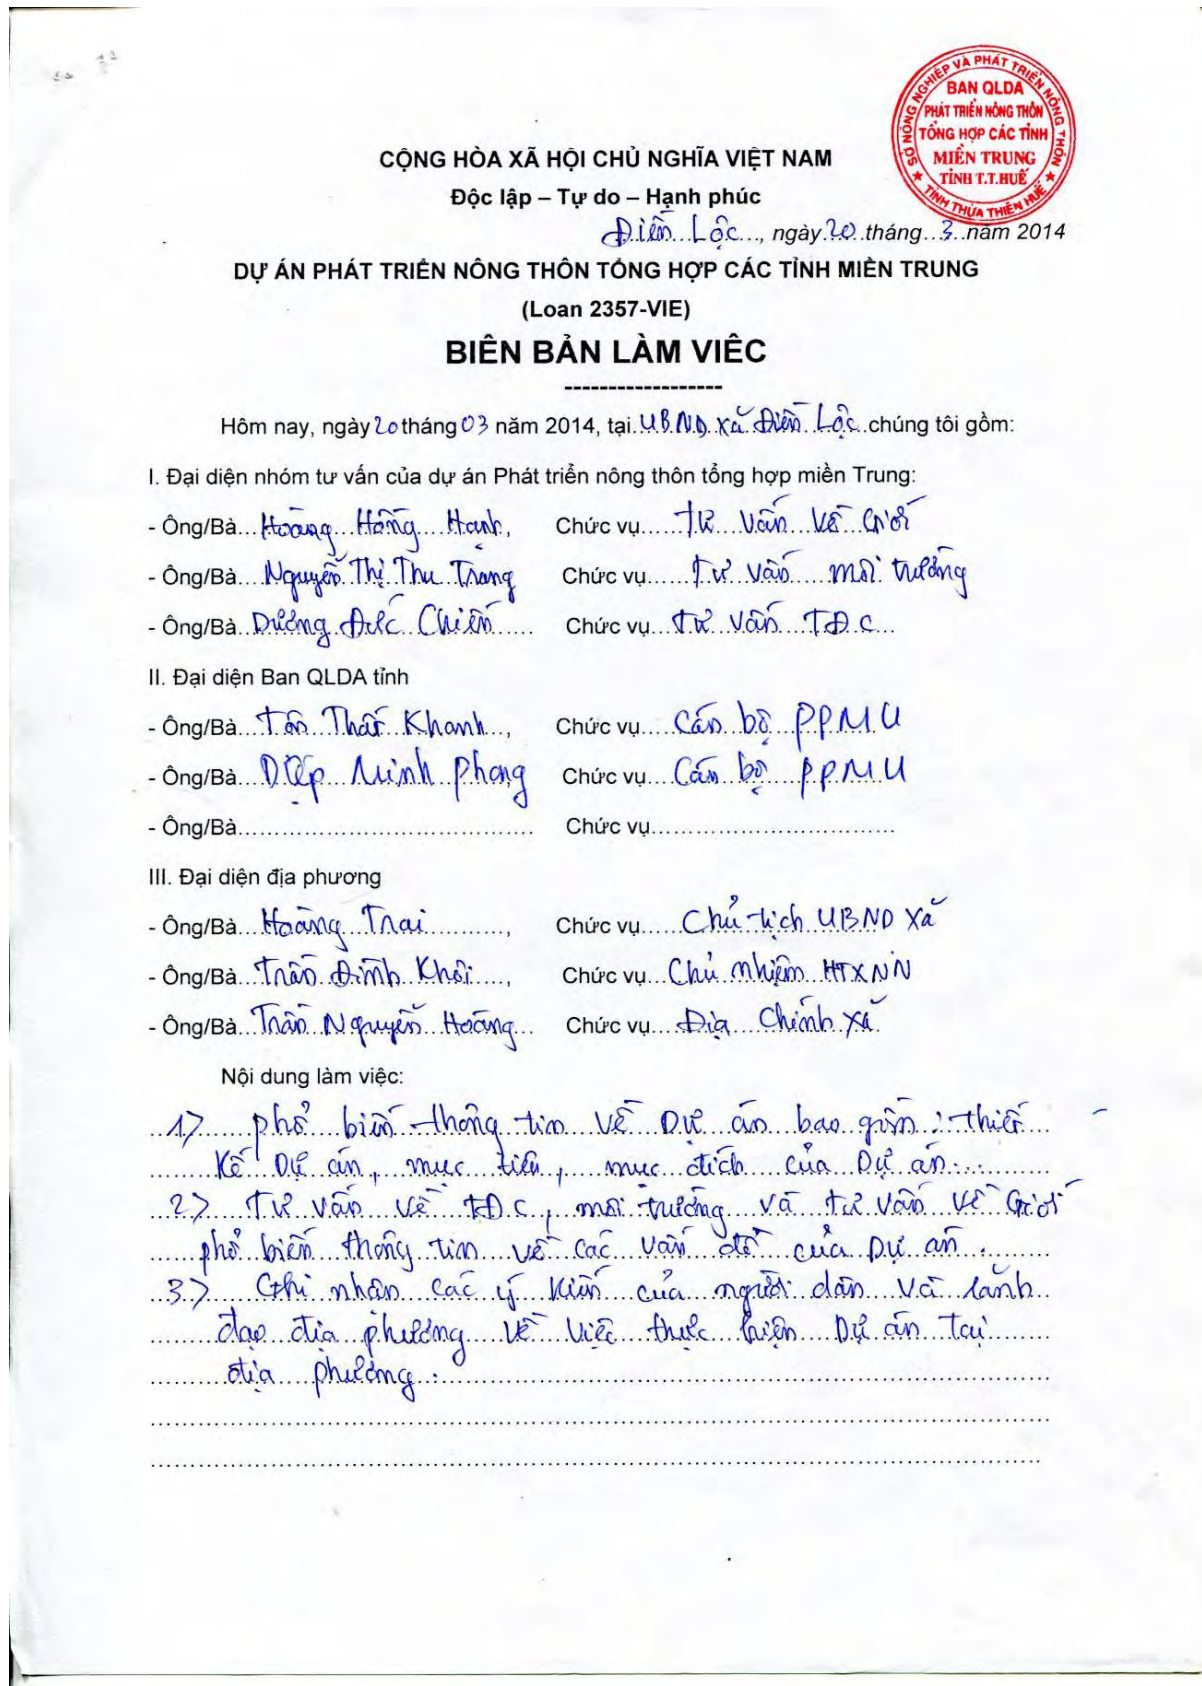 SỞ NÔNG NGHIỆP VÀ PHÁT TRIỂN NÔNG THÔN
BAN QLDA
PHÁT TRIỂN NÔNG THÔN
TỔNG HỢP CÁC TỈNH
MIỀN TRUNG
TỈNH T.T.HUẾ
TỈNH THỪA THIÊN HUẾ
CỘNG HÒA XÃ HỘI CHỦ NGHĨA VIỆT NAM
Độc lập – Tự do – Hạnh phúc
Điền Lộc..., ngày 20 tháng 3 năm 2014
DỰ ÁN PHÁT TRIỂN NÔNG THÔN TỔNG HỢP CÁC TỈNH MIỀN TRUNG
(Loan 2357-VIE)
BIÊN BẢN LÀM VIÊC
------------------
Hôm nay, ngày 20 tháng 03 năm 2014, tại UBND xã Điền Lộc chúng tôi gồm:
I. Đại diện nhóm tư vấn của dự án Phát triển nông thôn tổng hợp miền Trung:
- Ông/Bà... Hoàng Hồng Hạnh, Chức vụ...... Tư vấn về Giới
- Ông/Bà... Nguyễn Thị Thu Trang Chức vụ...... Tư vấn môi trường
- Ông/Bà... Dương Đức Chiến...... Chức vụ... Tư vấn TĐC...
II. Đại diện Ban QLDA tỉnh
- Ông/Bà... Tôn Thất Khanh..., Chức vụ..... Cán bộ PPMU
- Ông/Bà... Diệp Minh Phong Chức vụ... Cán bộ PPMU
- Ông/Bà..................................... Chức vụ...............................
III. Đại diện địa phương
- Ông/Bà... Hoàng Trai..........., Chức vụ..... Chủ tịch UBND xã
- Ông/Bà... Trần Đình Khôi....., Chức vụ... Chủ nhiệm HTXNN
- Ông/Bà... Trần Nguyễn Hoàng... Chức vụ... Địa Chính xã
Nội dung làm việc:
1) phổ biến thông tin về Dự án bao gồm : thiết
kế Dự án, mục tiêu, mục đích của Dự án...
2) Tư vấn về TĐC, môi trường và tư vấn về Giới
phổ biến thông tin về các vấn đề của Dự án.
3) Ghi nhận các ý kiến của người dân và lãnh
đạo địa phương về việc thực hiện Dự án tại
địa phương.